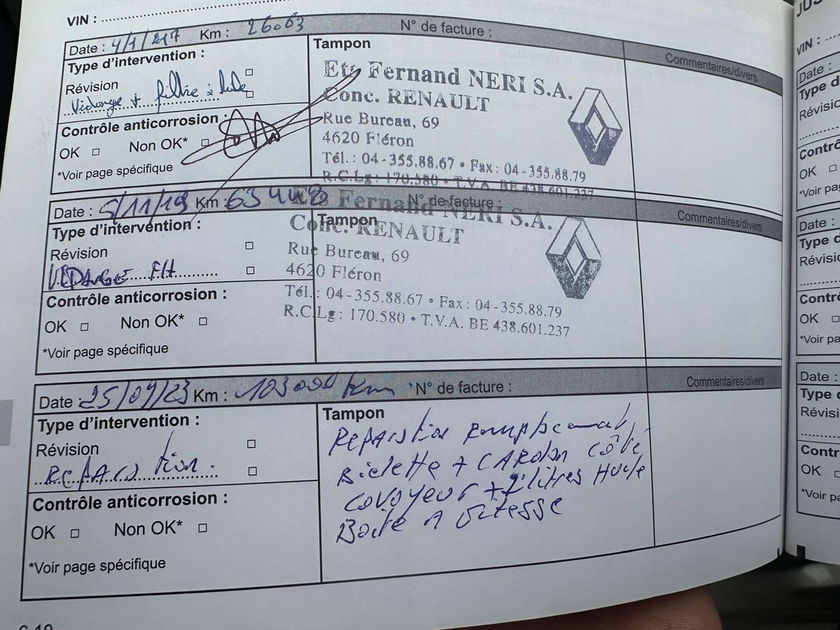 VIN :
Date : 4/1/217 Km : 26.063 N° de facture :
Type d'intervention :
Révision
Vidange + filtre à huile
Contrôle anticorrosion :
OK Non OK*
*Voir page spécifique
Tampon
Ets Fernand NERI S.A.
Conc. RENAULT
Rue Bureau, 69
4620 Fléron
Tél. : 04-355.88.67 • Fax : 04-355.88.79
R.C.Lg : 170.580 • T.V.A. BE 438.601.237
Commentaires/divers
Date : 5/11/19 Km : 63448 N° de facture :
Type d'intervention :
Révision
VIDANGE FH
Contrôle anticorrosion :
OK Non OK*
*Voir page spécifique
Tampon
Fernand NERI S.A.
Conc. RENAULT
Rue Bureau, 69
4620 Fléron
Tél. : 04-355.88.67 • Fax : 04-355.88.79
R.C.Lg : 170.580 • T.V.A. BE 438.601.237
Commentaires/divers
Date : 25/09/23 Km : 103000 Km N° de facture :
Type d'intervention :
Révision
Reparation.
Contrôle anticorrosion :
OK Non OK*
*Voir page spécifique
Tampon
Reparation Remplacement
Biellette + CARDAN Côté
Covoyeur + 2 litres Huile
Boite A Vitesse
Commentaires/divers
6.10
VIN :
Date :
Type d
Révisi
Contr
OK
*Voir pa
Date :
Type d
Révisi
Contrô
OK
*Voir pa
Date :
Type
Révisi
Contr
OK
*Voir pa